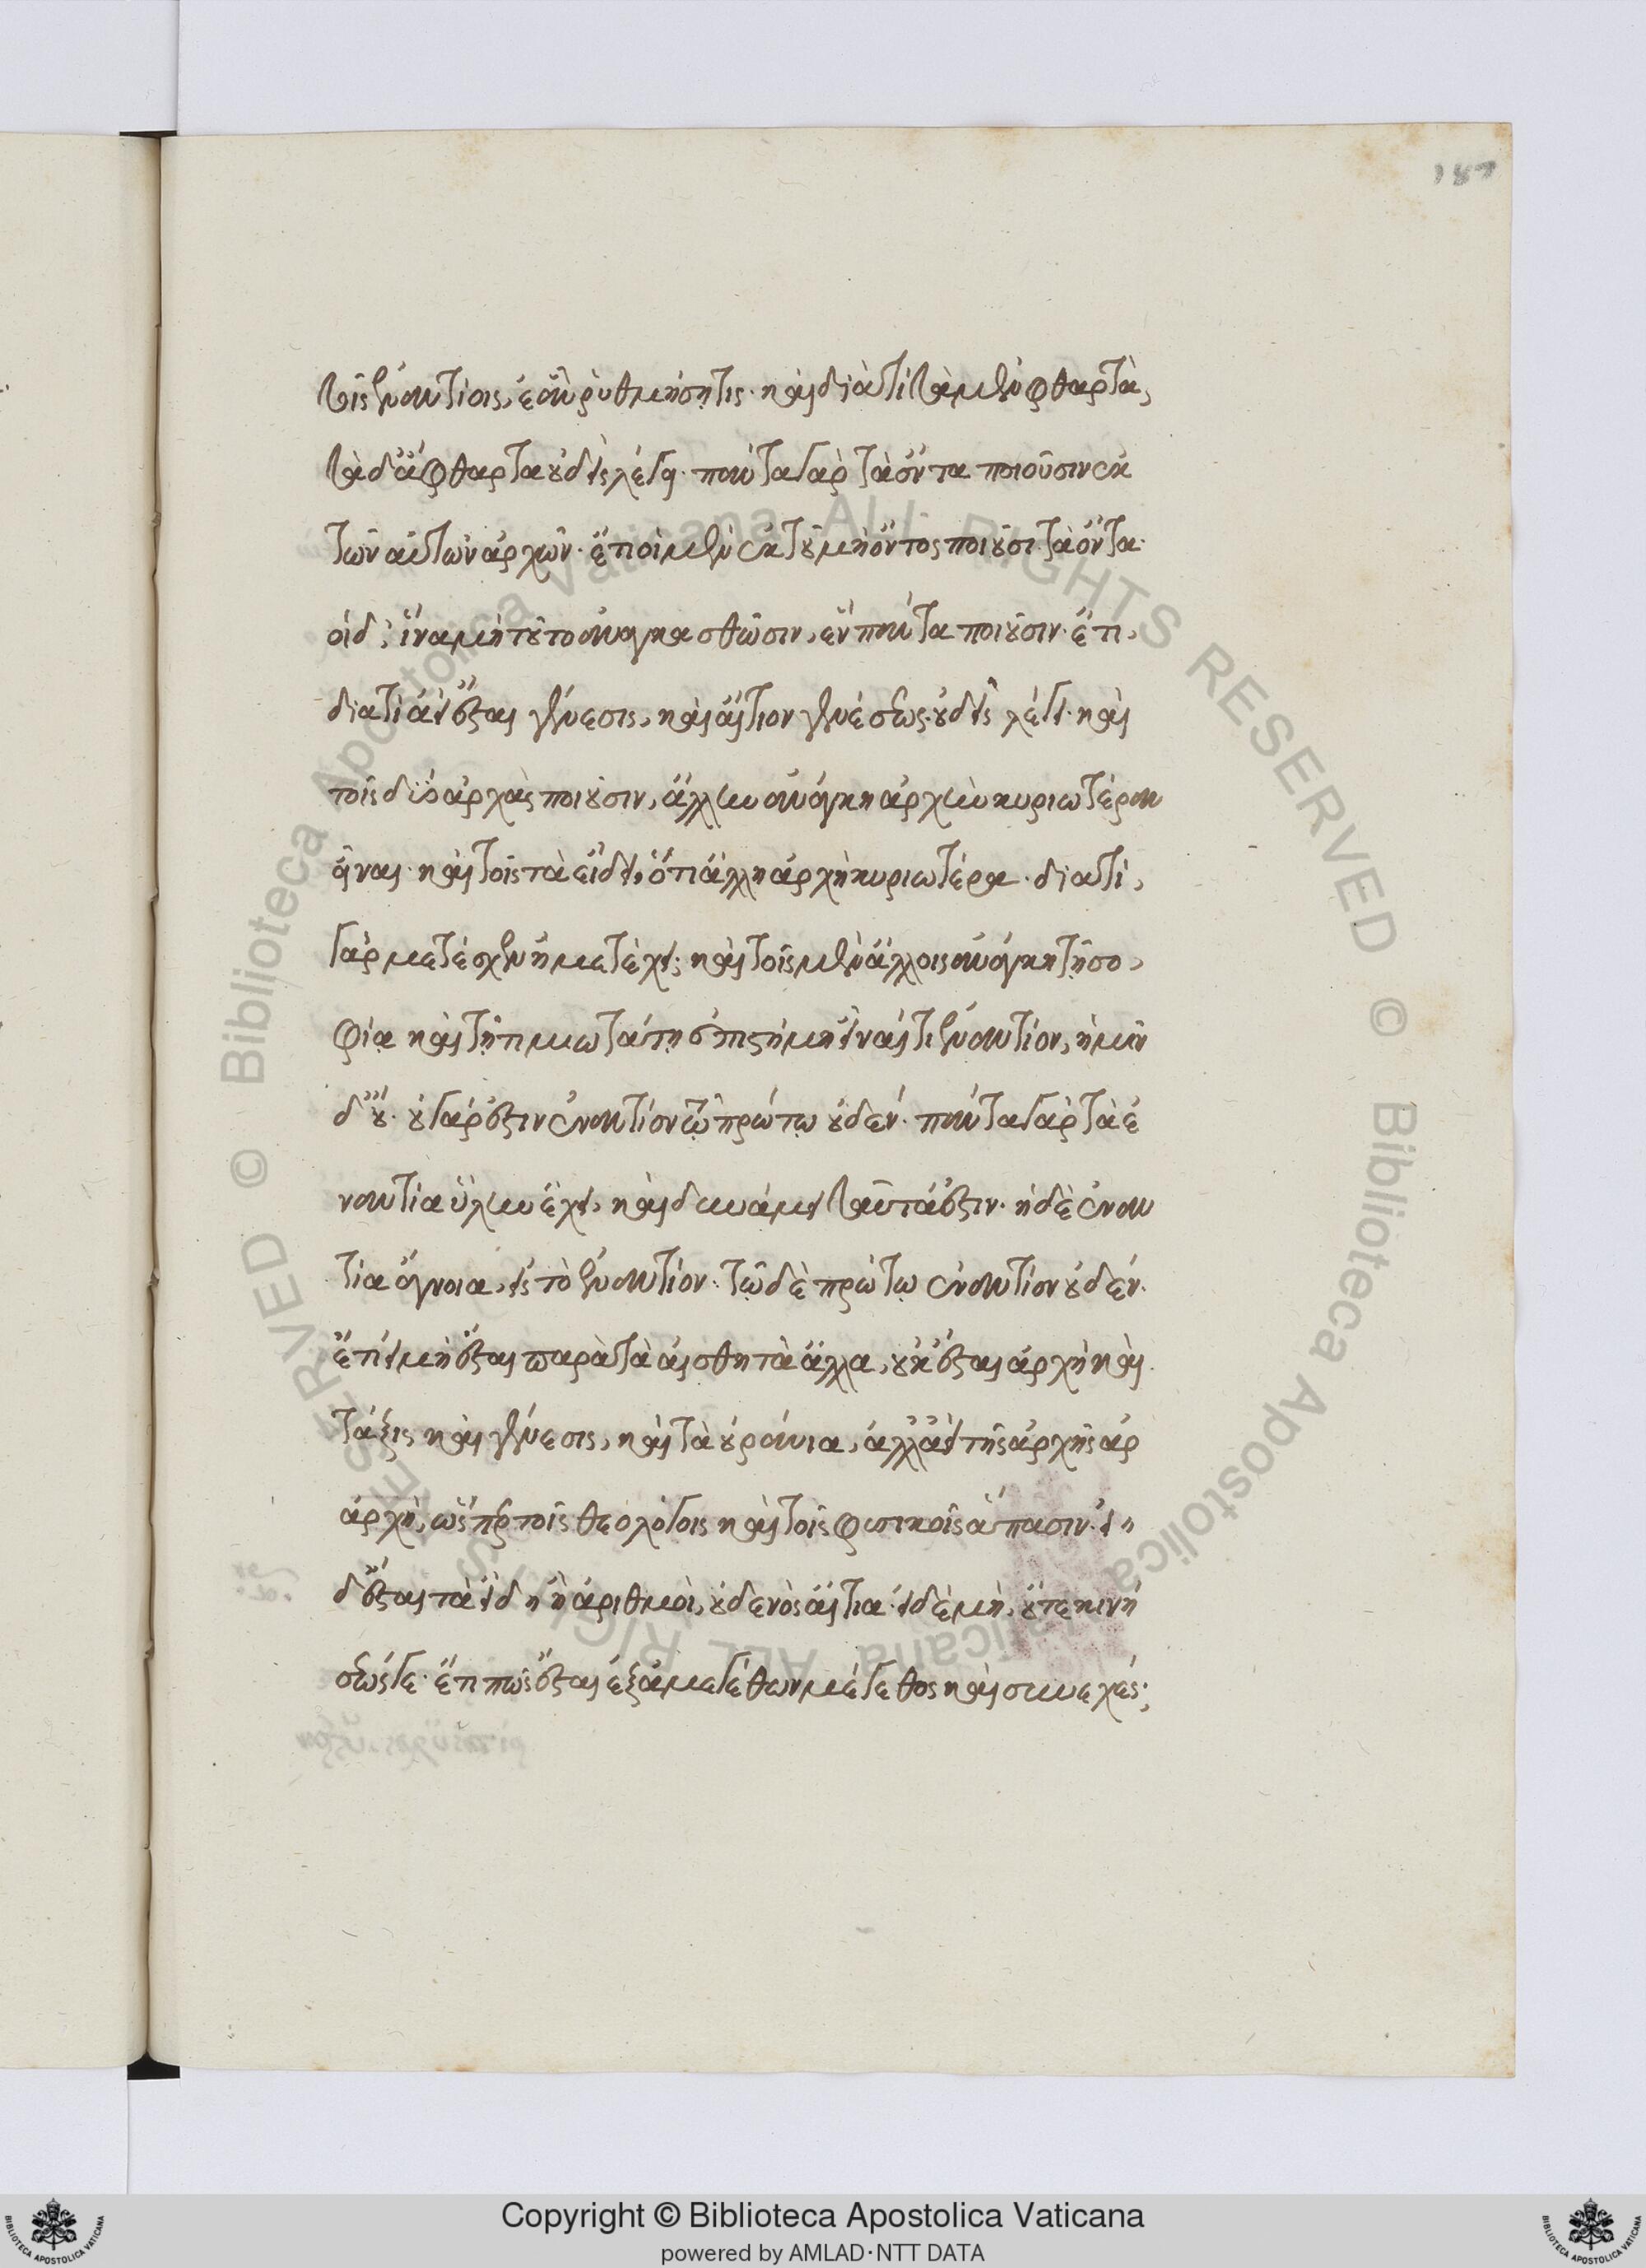 187
τοῖς ἐναντίοις, ἐὰν ῥυθμήσῃ τις. καὶ διὰ τί τὰ μὲν φθαρτὰ,
τὰ δ' ἄφθαρτα οὐδεὶς λέγει. πάντα γὰρ τὰ ὄντα ποιοῦσιν ἐκ
τῶν αὐτῶν ἀρχῶν. ἔτι οἱ μὲν ἐκ τοῦ μὴ ὄντος ποιοῦσι τὰ ὄντα.
οἱ δ', ἵνα μὴ τοῦτο ἀναγκασθῶσιν, ἓν πάντα ποιοῦσιν. ἔτι,
διατί ἀεὶ ἔσται γένεσις, καὶ αἴτιον γενέσεως, οὐδεὶς λέγει. καὶ
τοῖς δύο ἀρχὰς ποιοῦσιν, ἄλλην ἀνάγκη ἀρχὴν κυριωτέραν
εἶναι. καὶ τοῖς τὰ εἴδη, ὅτι ἄλλη ἀρχὴ κυριωτέρα. διατί,
γὰρ μετέσχεν ἢ μετέχει; καὶ τοῖς μὲν ἄλλοις ἀνάγκη τῇ σο,
φίᾳ καὶ τῇ τιμιωτάτῃ ἐπιστήμῃ εἶναί τι ἐναντίον, ἡμῖν
δ' οὔ. οὐ γάρ ἐστιν ἐναντίον τῷ πρώτῳ οὐδέν. πάντα γὰρ τὰ ἐ
ναντία ὕλην ἔχει, καὶ δυνάμει ταῦτα ἔστιν. ἡ δὲ ἐναν
τία ἄγνοια, εἰς τὸ ἐναντίον. τῷ δὲ πρώτῳ ἐναντίον οὐδέν.
ἔτι εἰ μὴ ἔσται παρὰ τὰ αἰσθητὰ ἄλλα, οὐκ ἔσται ἀρχὴ καὶ
τάξις καὶ γένεσις, καὶ τὰ οὐράνια, ἀλλ' ἀεὶ τῆς ἀρχῆς ἀρ
ἀρχὴ, ὥσπερ τοῖς θεολόγοις καὶ τοῖς φυσικοῖς ἅπασιν. εἰ
δ' ἔσται τὰ εἴδη ἢ ἀριθμοὶ, οὐδενὸς αἴτια. εἰ δὲ μὴ, οὔτι κινή
σεώς γε. ἔτι πῶς ἔσται ἐξ ἀμεγέθων μέγεθος καὶ συνεχές;
Copyright © Biblioteca Apostolica Vaticana
powered by AMLAD·NTT DATA